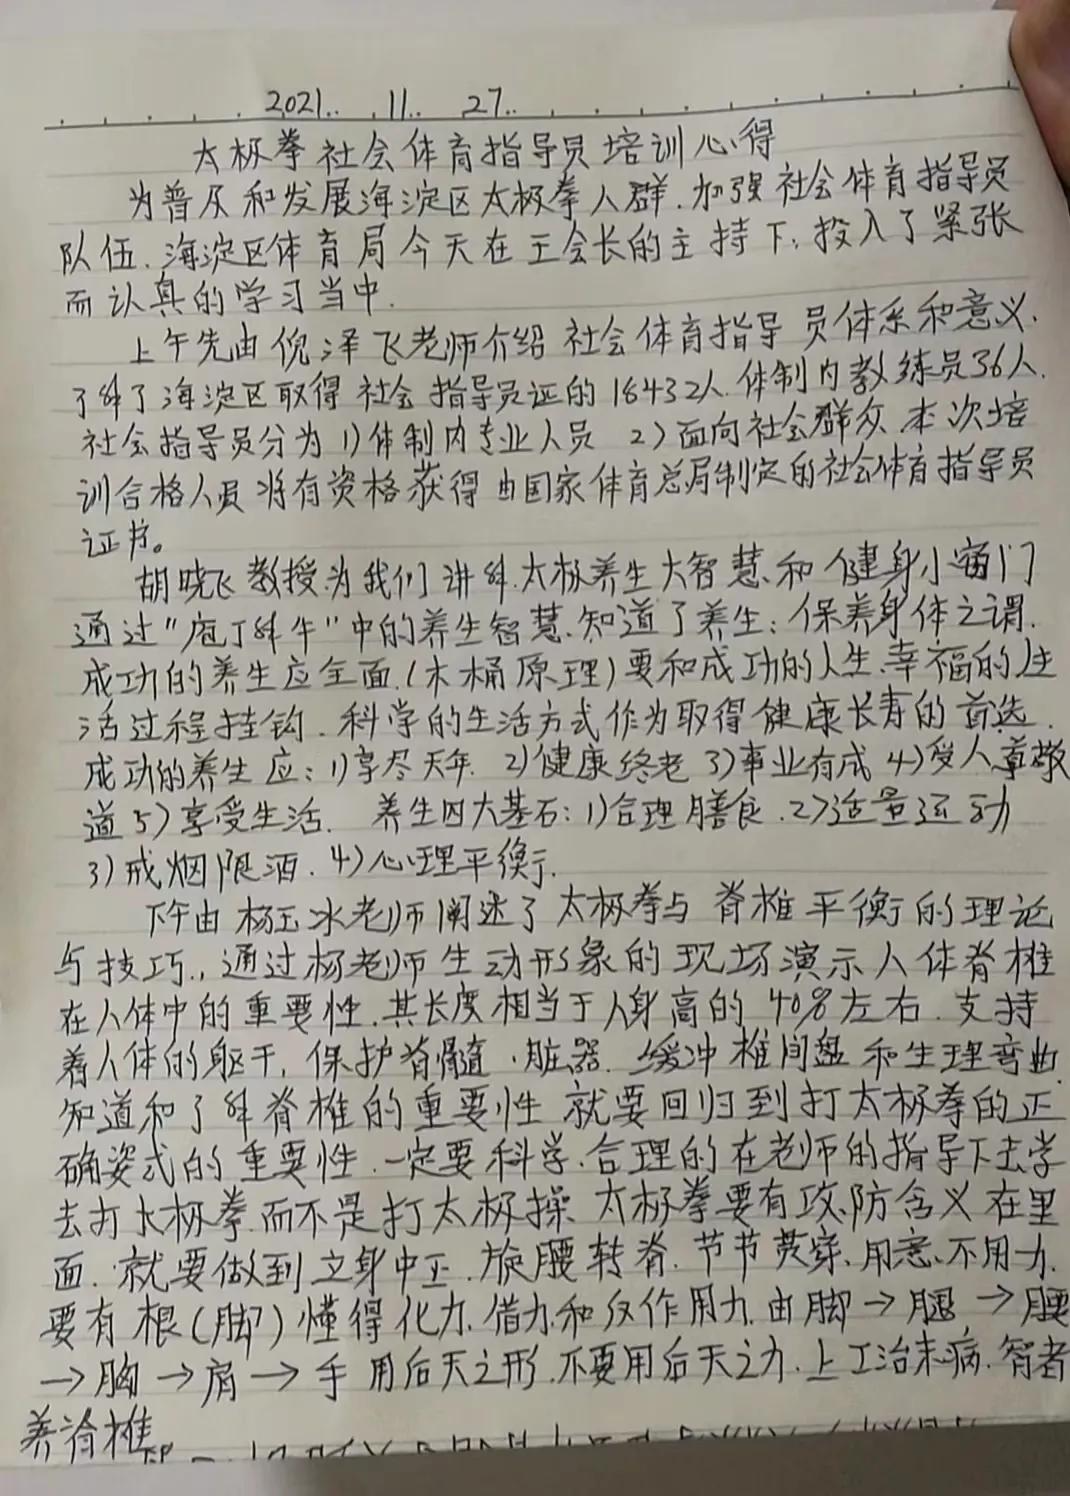 2021.. 11.. 27..
太极拳社会体育指导员培训心得
为普及和发展海淀区太极拳人群.加强社会体育指导员
队伍.海淀区体育局今天在王会长的主持下,投入了紧张
而认真的学习当中.
上午先由倪泽飞老师介绍社会体育指导员体系和意义.
了解了海淀区取得社会指导员证的18432人.体制内教练员36人.
社会指导员分为1)体制内专业人员 2)面向社会群众.本次培
训合格人员将有资格获得由国家体育总局制定的社会体育指导员
证书。
胡晓飞教授为我们讲解.太极养生大智慧和健身小窍门
通过"庖丁解牛"中的养生智慧.知道了养生:保养身体之谓.
成功的养生应全面.(木桶原理)要和成功的人生.幸福的生
活过程挂钩.科学的生活方式作为取得健康长寿的首选.
成功的养生应:1)享尽天年 2)健康终老 3)事业有成 4)受人尊敬
道 5)享受生活. 养生四大基石:1)合理膳食.2)适量运动
3)戒烟限酒.4)心理平衡.
下午由杨玉冰老师阐述了太极拳与脊椎平衡的理论
与技巧.,通过杨老师生动形象的现场演示人体脊椎
在人体中的重要性.其长度相当于人身高的40%左右.支持
着人体的躯干,保护脊髓.脏器.缓冲椎间盘和生理弯曲.
知道和了解脊椎的重要性 就要回归到打太极拳的正
确姿式的重要性.一定要科学.合理的在老师的指导下去学
去打太极拳.而不是打太极操.太极拳要有攻.防含义在里
面.就要做到立身中正.旋腰转脊.节节贯穿.用意不用力.
要有根(脚)懂得化力.借力和反作用力.由脚→腿→腰
→胸→肩→手 用后天之形.不要用后天之力.上工治未病.智者
养脊椎